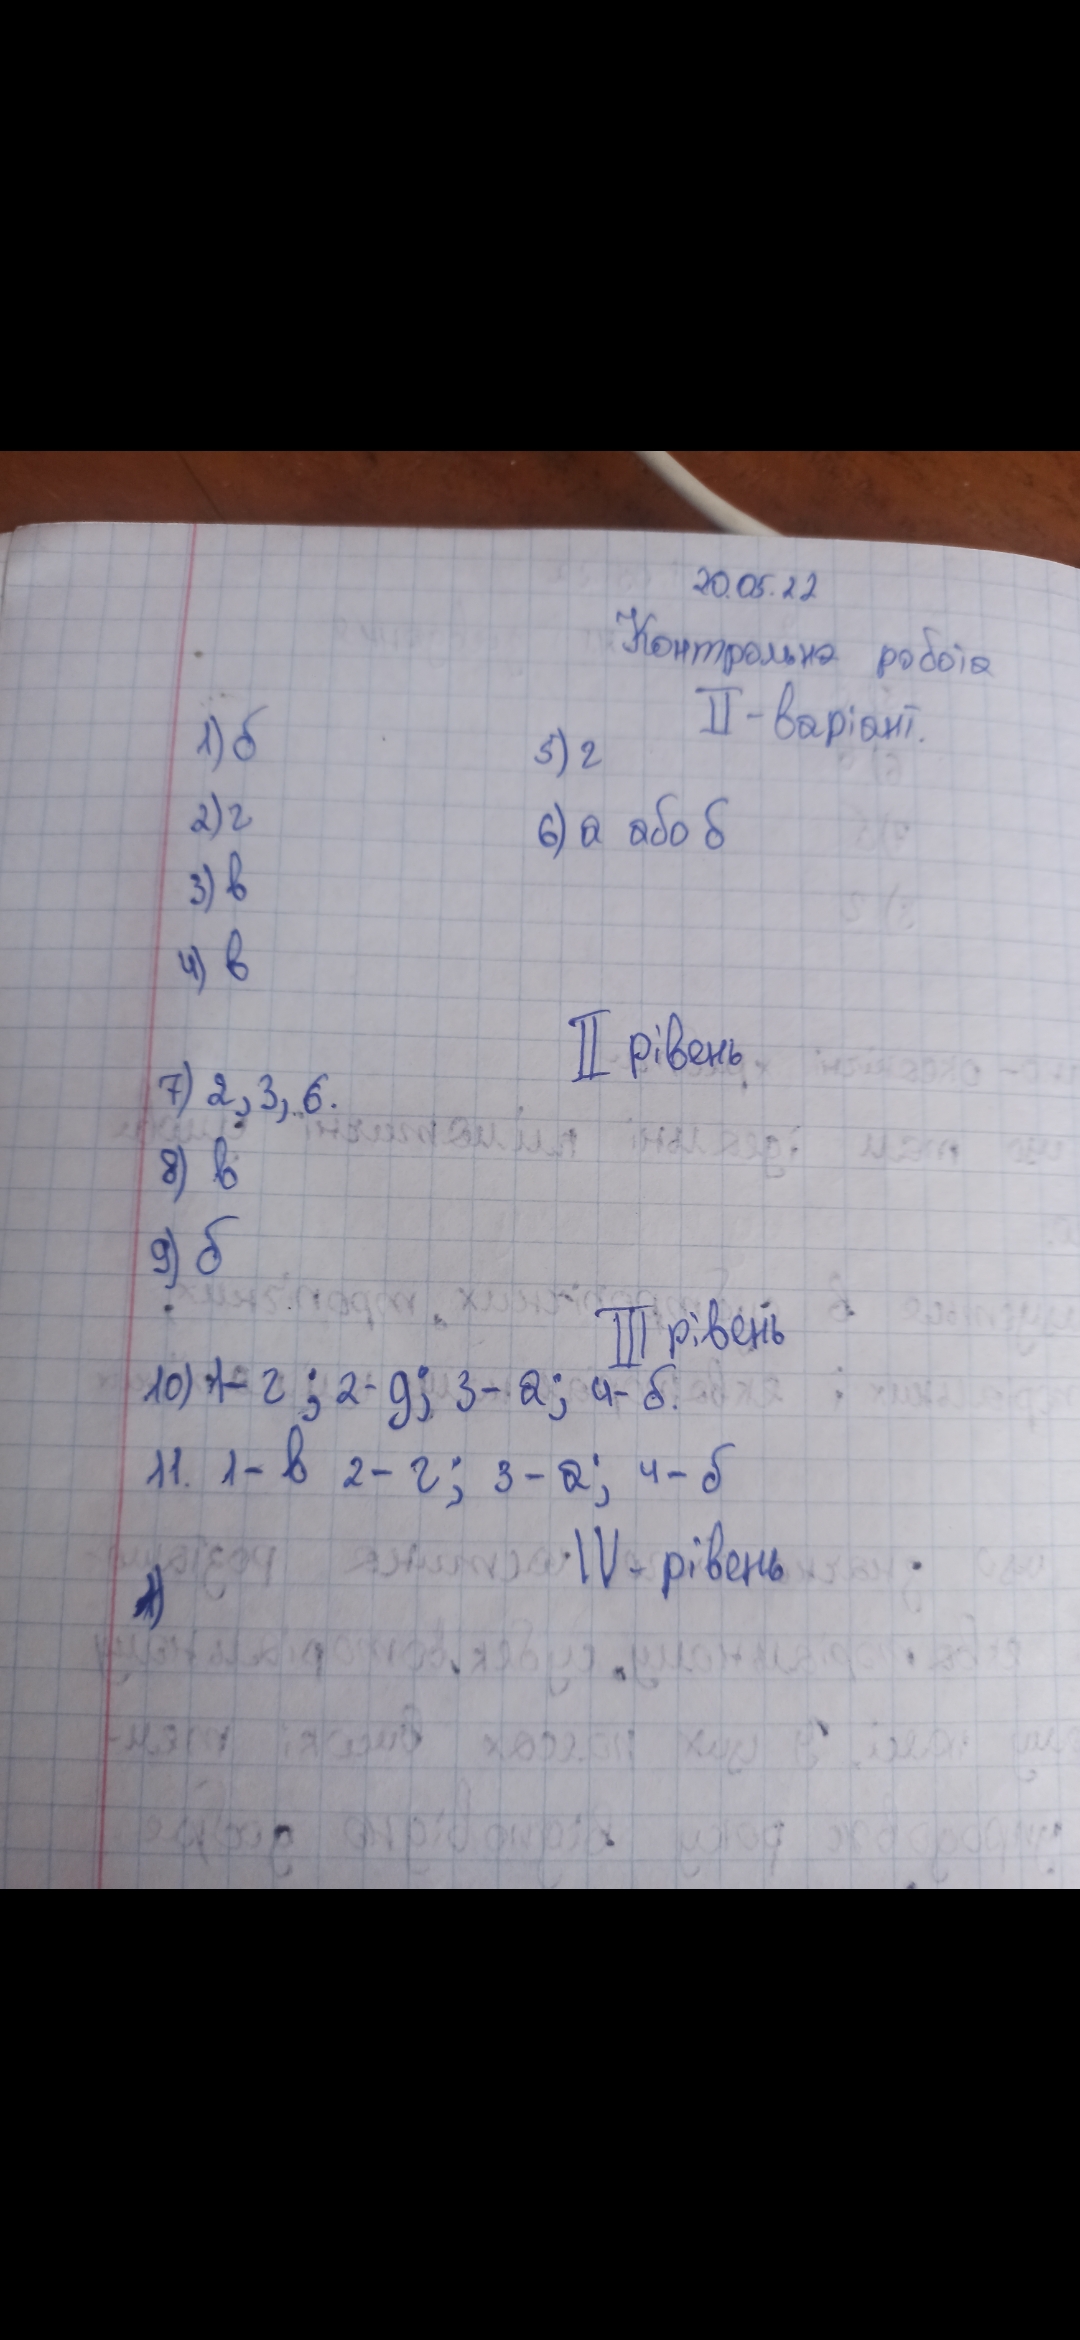 20.05.22
Контрольна робота
II-варіант.
1) б
5) г
2) г
6) а або б
3) в
4) в
II рівень
7) 2, 3, 6.
8) в
9) б
III рівень
10) 1-г; 2-д; 3-а; 4-б.
11. 1-в 2-г; 3-а; 4-б
IV-рівень